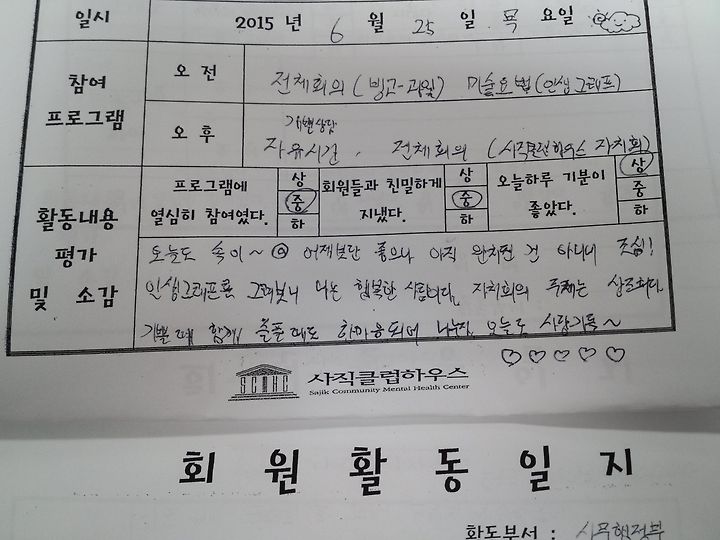 일시 2015 년 6 월 25 일 목 요일
참여 프로그램
오 전 전체회의 (빙고-과일) 미술요법 (인생 그래프)
개별상담
오 후 자유시간, 전체회의 (사직클럽하우스 자치회)
활동내용 평가 및 소감
프로그램에 열심히 참여였다. 상 중 하
회원들과 친밀하게 지냈다. 상 중 하
오늘하루 기분이 좋았다. 상 중 하
오늘도 속이~ 어제보단 좋으나 아직 완치된 건 아니니 조심!
인생그래프를 그려보니 나는 행복한 사람이다. 자치회의 주제는 상조회다.
기쁠 때 함께 슬플 때도 하나 되어 나누자. 오늘도 사랑가득~
SCMHC 사직클럽하우스
Sajik Community Mental Health Center
회 원 활 동 일 지
활동부서 : 사무행정부